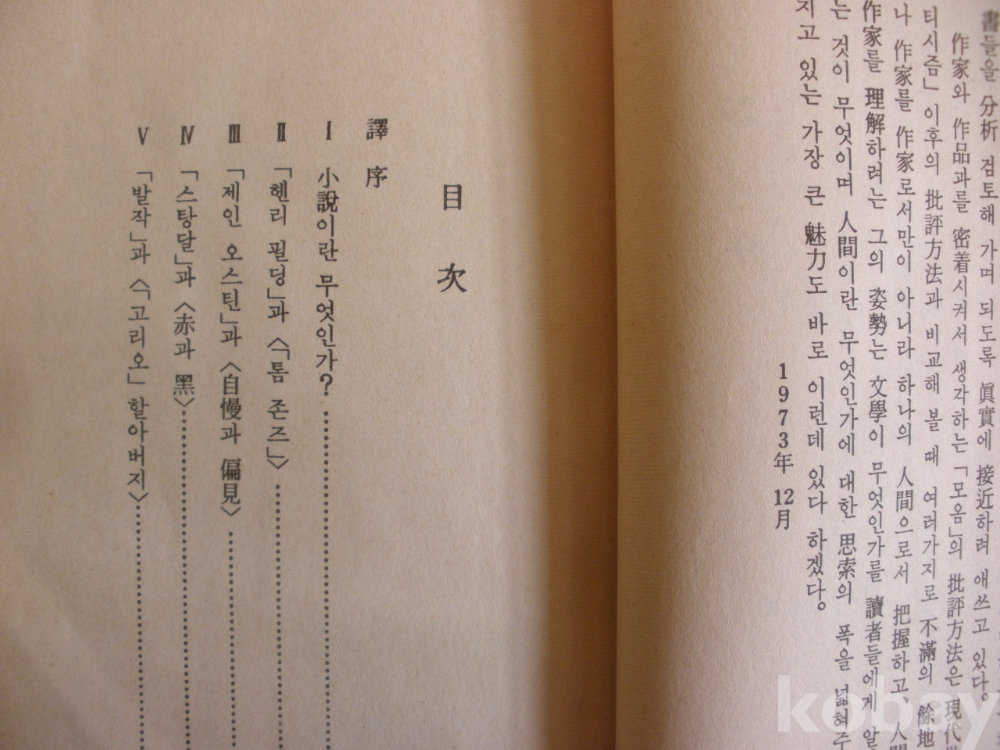 書들을 分析 검토해 가며 되도록 眞實에 接近하려 애쓰고 있다.
作家와 作品과를 密着시켜서 생각하는 「모옴」의 批評方法은 現代
티시즘」 이후의 批評方法과 비교해 볼 때 여러가지로 不滿의 餘地
나 作家를 作家로서만이 아니라 하나의 人間으로서 把握하고, 人間
作家를 理解하려는 그의 姿勢는 文學이 무엇인가를 讀者들에게 알
는 것이 무엇이며 人間이란 무엇인가에 대한 思索의 폭을 넓혀주
지고 있는 가장 큰 魅力도 바로 이런데 있다 하겠다.
1973年 12月
目次
譯序
Ⅰ 小說이란 무엇인가? ……………………
Ⅱ 「헨리 필딩」과 〈「톰 존즈」〉 ……………………
Ⅲ 「제인 오스틴」과 〈自慢과 偏見〉 ……………………
Ⅳ 「스탕달」과 〈赤과 黑〉 ……………………
Ⅴ 「발작」과 〈「고리오」 할아버지〉 ……………………
kobay